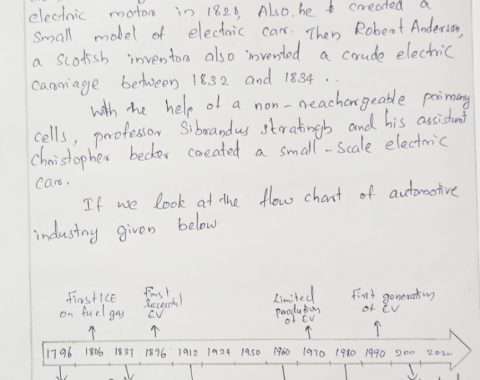 electric motor in 1828, Also, he created a
small model of electric car. Then Robert Anderson,
a Scotish inventor also invented a crude electric
carriage between 1832 and 1834 ..
With the help of a non-reachargeable primary
cells, professor Sibrandus Stratingh and his assistant
Christopher becker created a small-scale electric
car.
If we look at the flow chart of automotive
industry given below
First ICE
on fuel gas
First
EV
Limited
production
of EV
First generation
of EV
1796 1806 1837 1896 1912 1924 1950 1960 1970 1980 1990